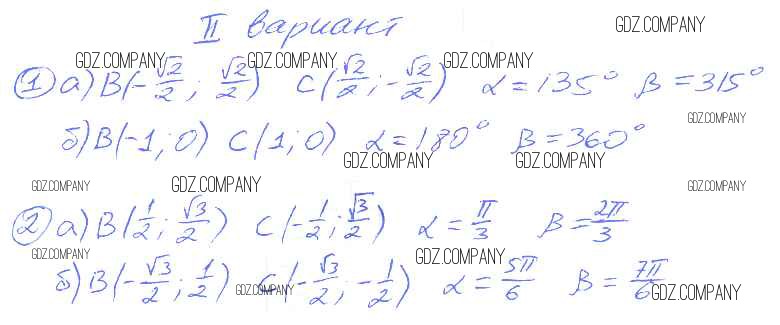 II вариант
GDZ.COMPANY
GDZ.COMPANY GDZ.COMPANY GDZ.COMPANY
① а) B(-√2/2; √2/2) C(√2/2; -√2/2) α = 135° β = 315°
GDZ.COMPANY
б) B(-1; 0) C(1; 0) α = 180° β = 360°
GDZ.COMPANY GDZ.COMPANY
GDZ.COMPANY GDZ.COMPANY GDZ.COMPANY
② а) B(1/2; √3/2) C(-1/2; √3/2) α = π/3 β = 2π/3
GDZ.COMPANY GDZ.COMPANY
б) B(-√3/2; 1/2) C(-√3/2; -1/2) α = 5π/6 β = 7π/6
GDZ.COMPANY GDZ.COMPANY